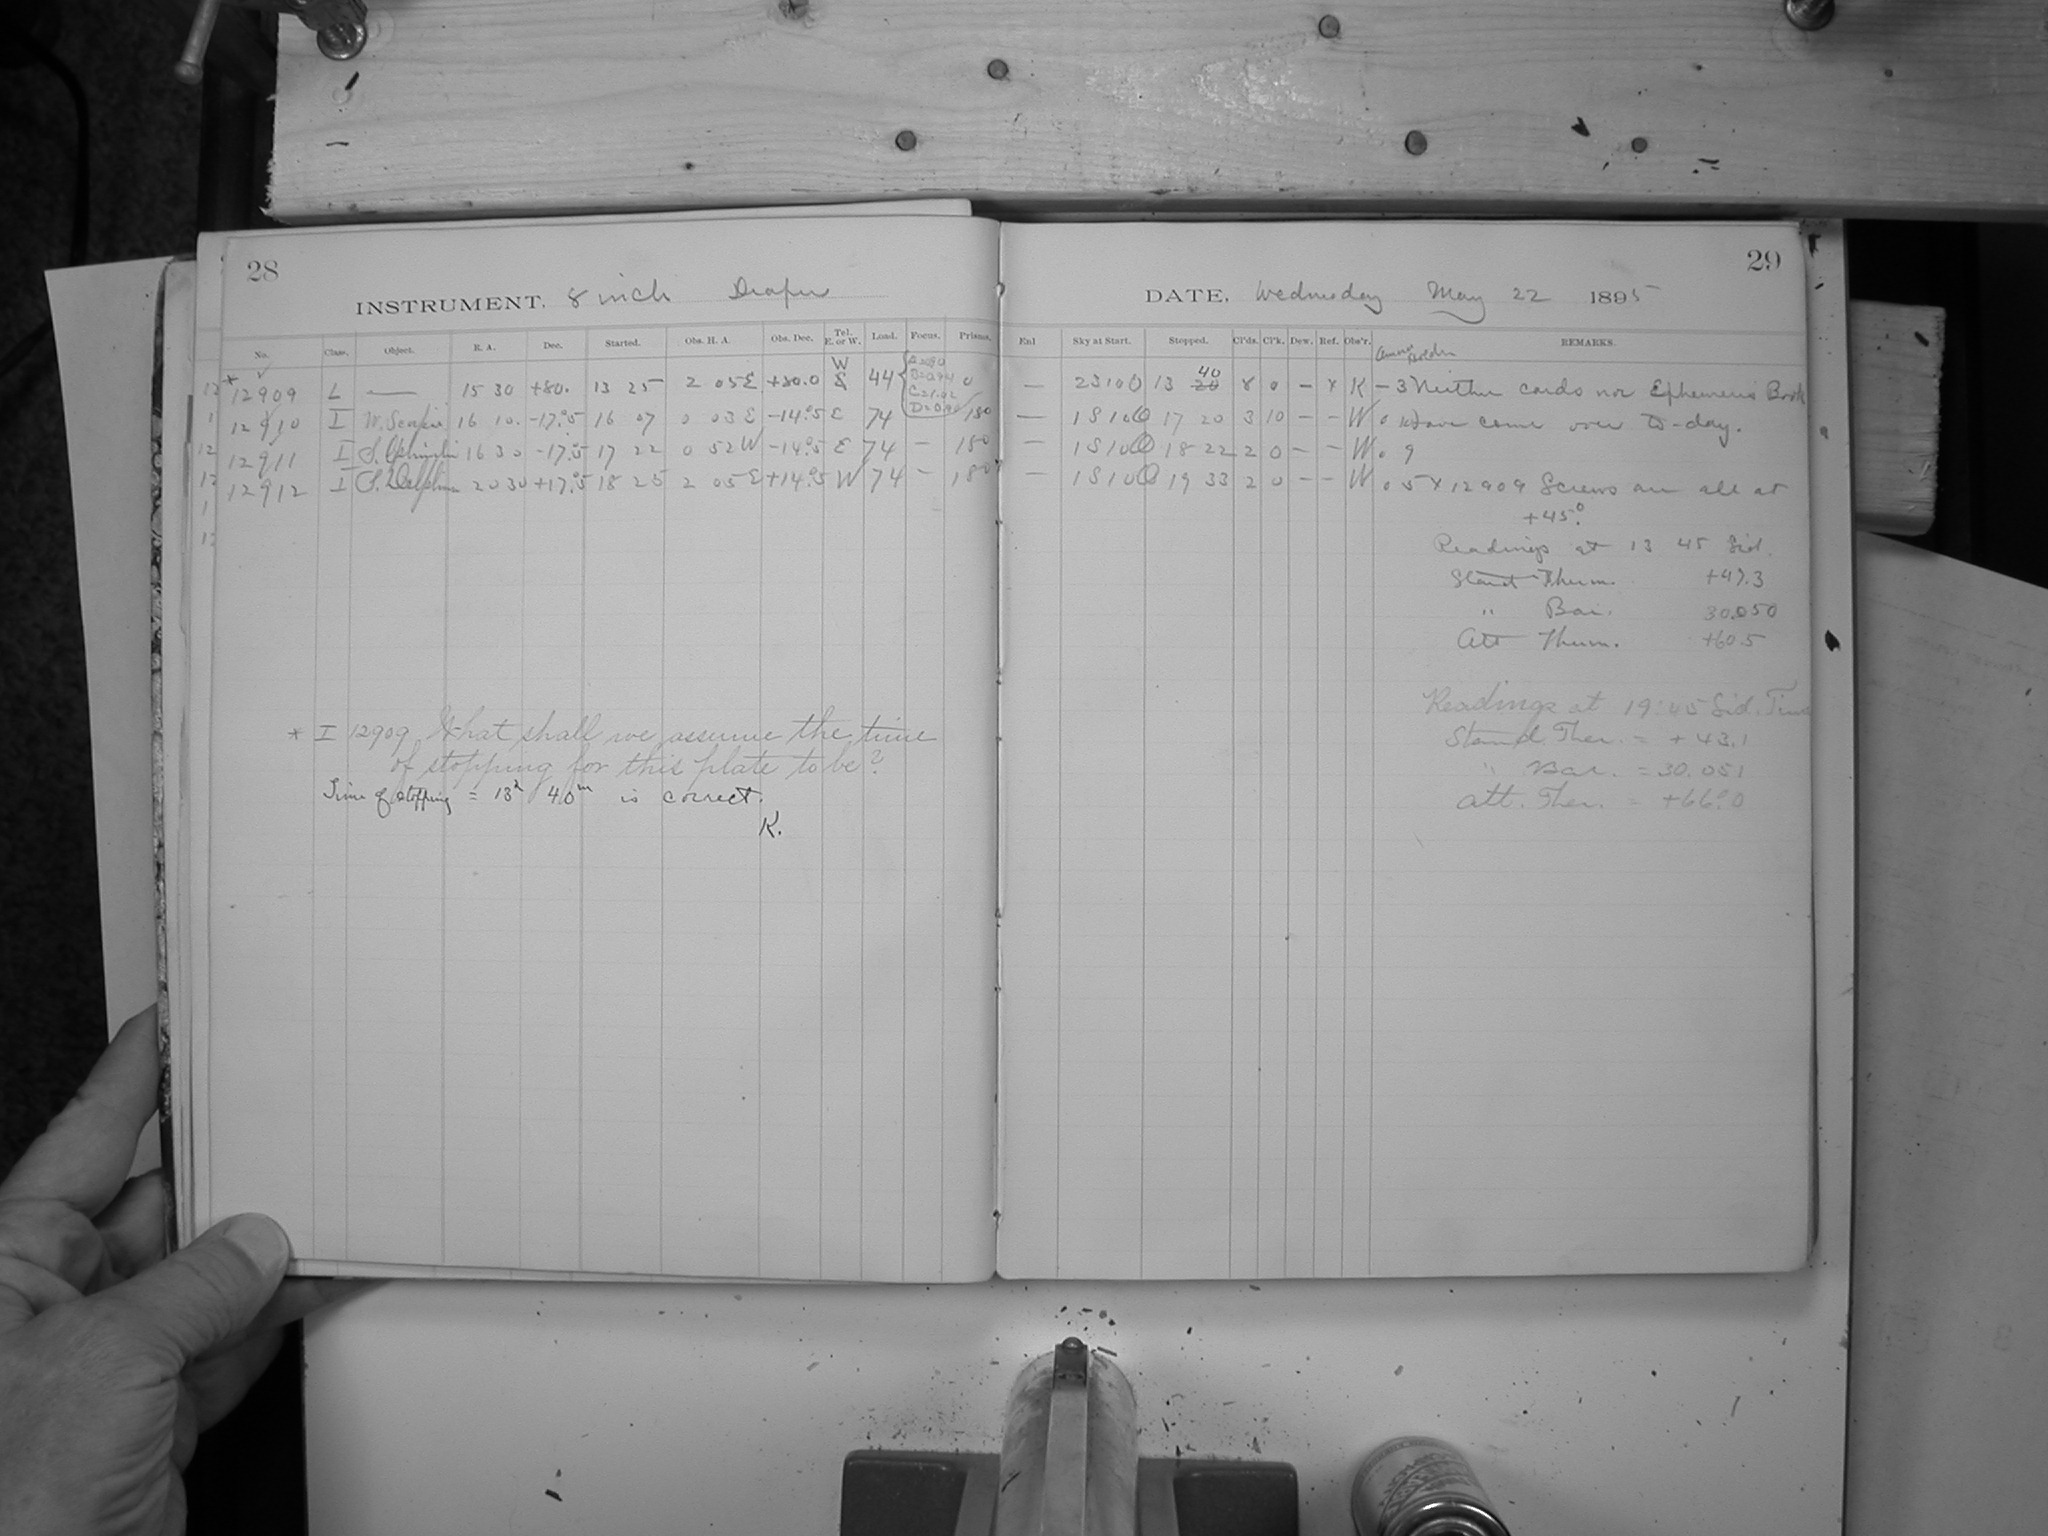 28
INSTRUMENT. 8 inch Draper
No. Class. Object. R. A. Dec. Started. Obs. H. A. Obs. Dec. Tel. E. or W. Load. Focus. Prisms.
* 12909 L — 15 30 +80. 13 25 2 05 E +80.0 W 44 0
12910 I W. Scorpii 16 10. -17°.5 16 07 0 03 E -14°.5 E 74 180
12911 I 16 30 -17°.5 17 22 0 52 W -14°.5 E 74 – 180
12912 I 20 30 +17°.5 18 25 2 05 E +14°.5 W 74 – 180
* I 12909. What shall we assume the time
of stopping for this plate to be?
Time of stopping = 13h 40m is correct.
K.
29
DATE, Wednesday May 22 1895
Enl Sky at Start. Stopped. Cl'ds. Cl'k. Dew. Ref. Obs'r. REMARKS.
— 23100 13 40 8 0 – x K – 3 Neither cards nor Ephemeris Book
— 18100 17 20 3 10 – – W 0 Have come over to-day.
— 18100 18 22 2 0 – – W . 9
— 18100 19 33 2 0 – – W . 05 x 12909 Screws are all at
+45°.
Readings at 13 45 Sid.
Stand Therm. +49.3
" Bar. 30.050
Att Therm. +60.5
Readings at 19:45 Sid. Time
Stand. Ther. = +43.1
" Bar. = 30.051
Att. Ther. = +66°.0